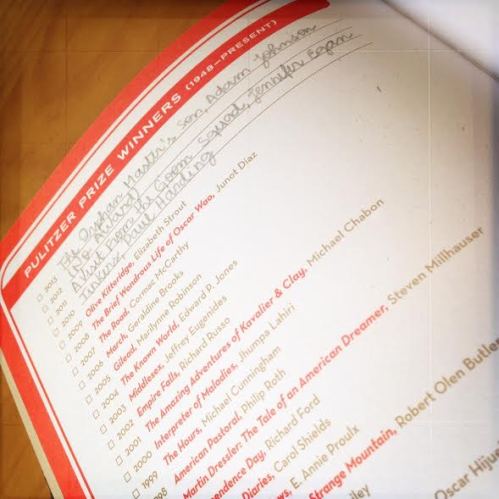 PULITZER PRIZE WINNERS (1948–PRESENT)
2013 The Orphan Master's Son, Adam Johnson
2012 (No Award)
2011 A Visit From the Goon Squad, Jennifer Egan
2010 Tinkers, Paul Harding
2009 Olive Kitteridge, Elizabeth Strout
2008 The Brief Wondrous Life of Oscar Wao, Junot Díaz
2007 The Road, Cormac McCarthy
2006 March, Geraldine Brooks
2005 Gilead, Marilynne Robinson
2004 The Known World, Edward P. Jones
2003 Middlesex, Jeffrey Eugenides
2002 Empire Falls, Richard Russo
2001 The Amazing Adventures of Kavalier & Clay, Michael Chabon
2000 Interpreter of Maladies, Jhumpa Lahiri
1999 The Hours, Michael Cunningham
American Pastoral, Philip Roth
Martin Dressler: The Tale of an American Dreamer, Steven Millhauser
pendence Day, Richard Ford
Diaries, Carol Shields
ws, E. Annie Proulx
range Mountain, Robert Olen Butler
iley
Oscar Hijue